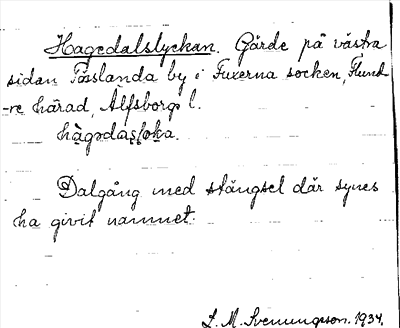 Hagedalslyckan. Gärde på västra
sidan Fosslanda by i Fuxerna socken, Flund-
re härad, Älfsborgs l.
hàgədaʂl̥oka.
Dalgång med stängsel där synes
ha givit namnet.
L. M. Svenungsson. 1934.